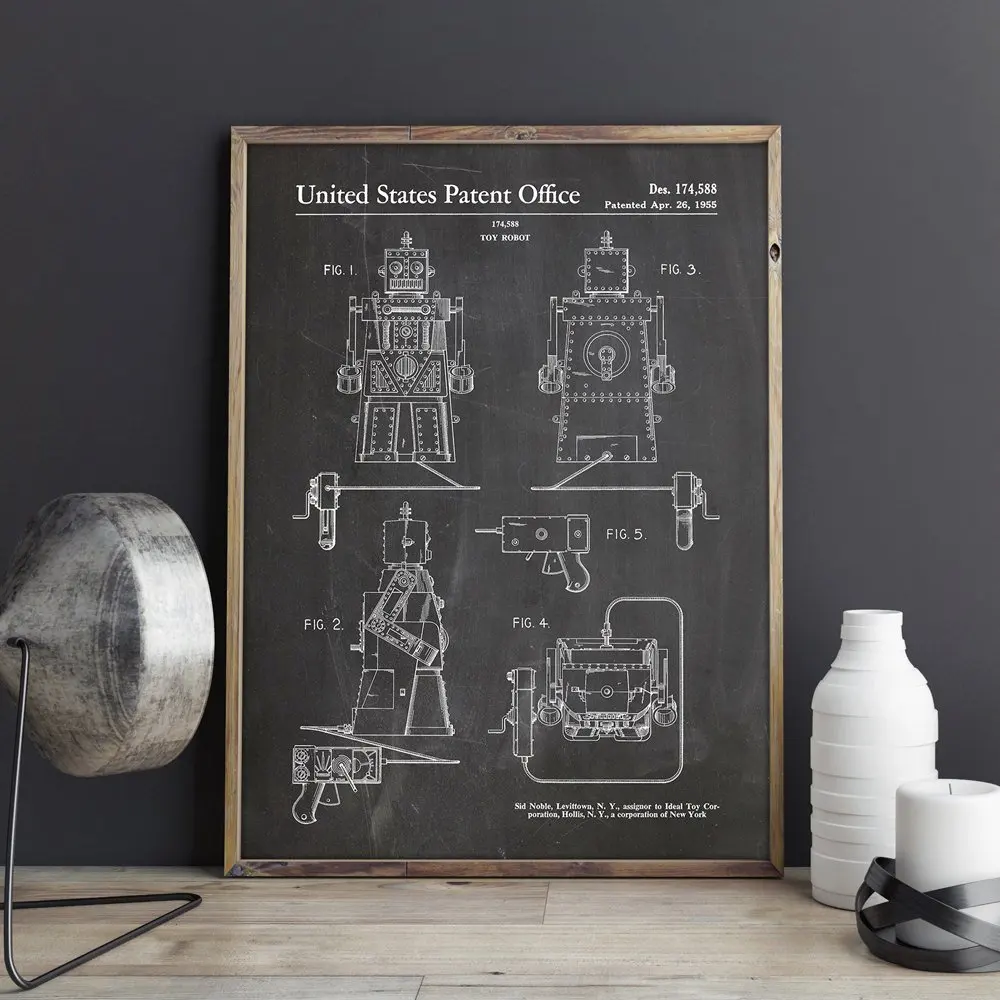 United States Patent Office
Des. 174,588
Patented Apr. 26, 1955
174,588
TOY ROBOT
FIG. 1.
FIG. 3.
FIG. 5.
FIG. 2.
FIG. 4.
Sid Noble, Levittown, N. Y., assignor to Ideal Toy Cor-
poration, Hollis, N. Y., a corporation of New York